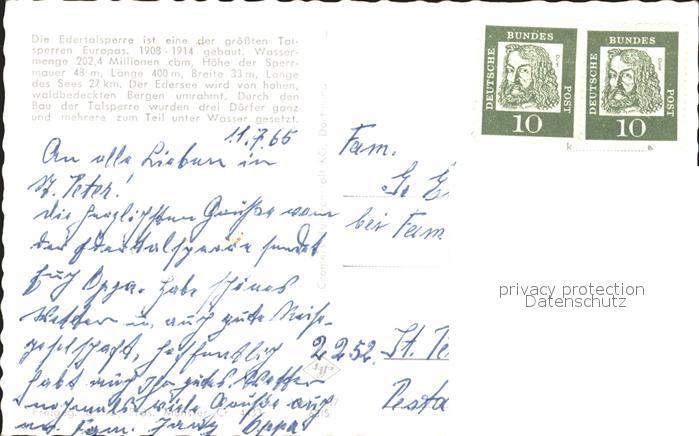 Die Edertalsperre ist eine der größten Tal-
sperren Europas. 1908-1914 gebaut, Wasser-
menge 202,4 Millionen cbm, Höhe der Sperr-
mauer 48 m, Länge 400 m, Breite 33 m, Länge
des Sees 27 km. Der Edersee wird von hohen,
waldbedeckten Bergen umrahmt. Durch den
Bau der Talsperre wurden drei Dörfer ganz
und mehrere zum Teil unter Wasser gesetzt.
11.7.65
An alle Lieben in
St. Peter!
die herzlichsten Grüße von
der Edertalsperre sendet
Euch Oppa. Habe schönes
Wetter u. auch gute Reise-
gesellschaft, hoffentlich
habt auch Ihr gutes Wetter
nochmals viele Grüße auch
an Fam. Oppa
Fam.
bei Fam
2252. St. Pe
DEUTSCHE BUNDES POST
Dürer
10
DEUTSCHE BUNDES POST
Dürer
10
privacy protection
Datenschutz